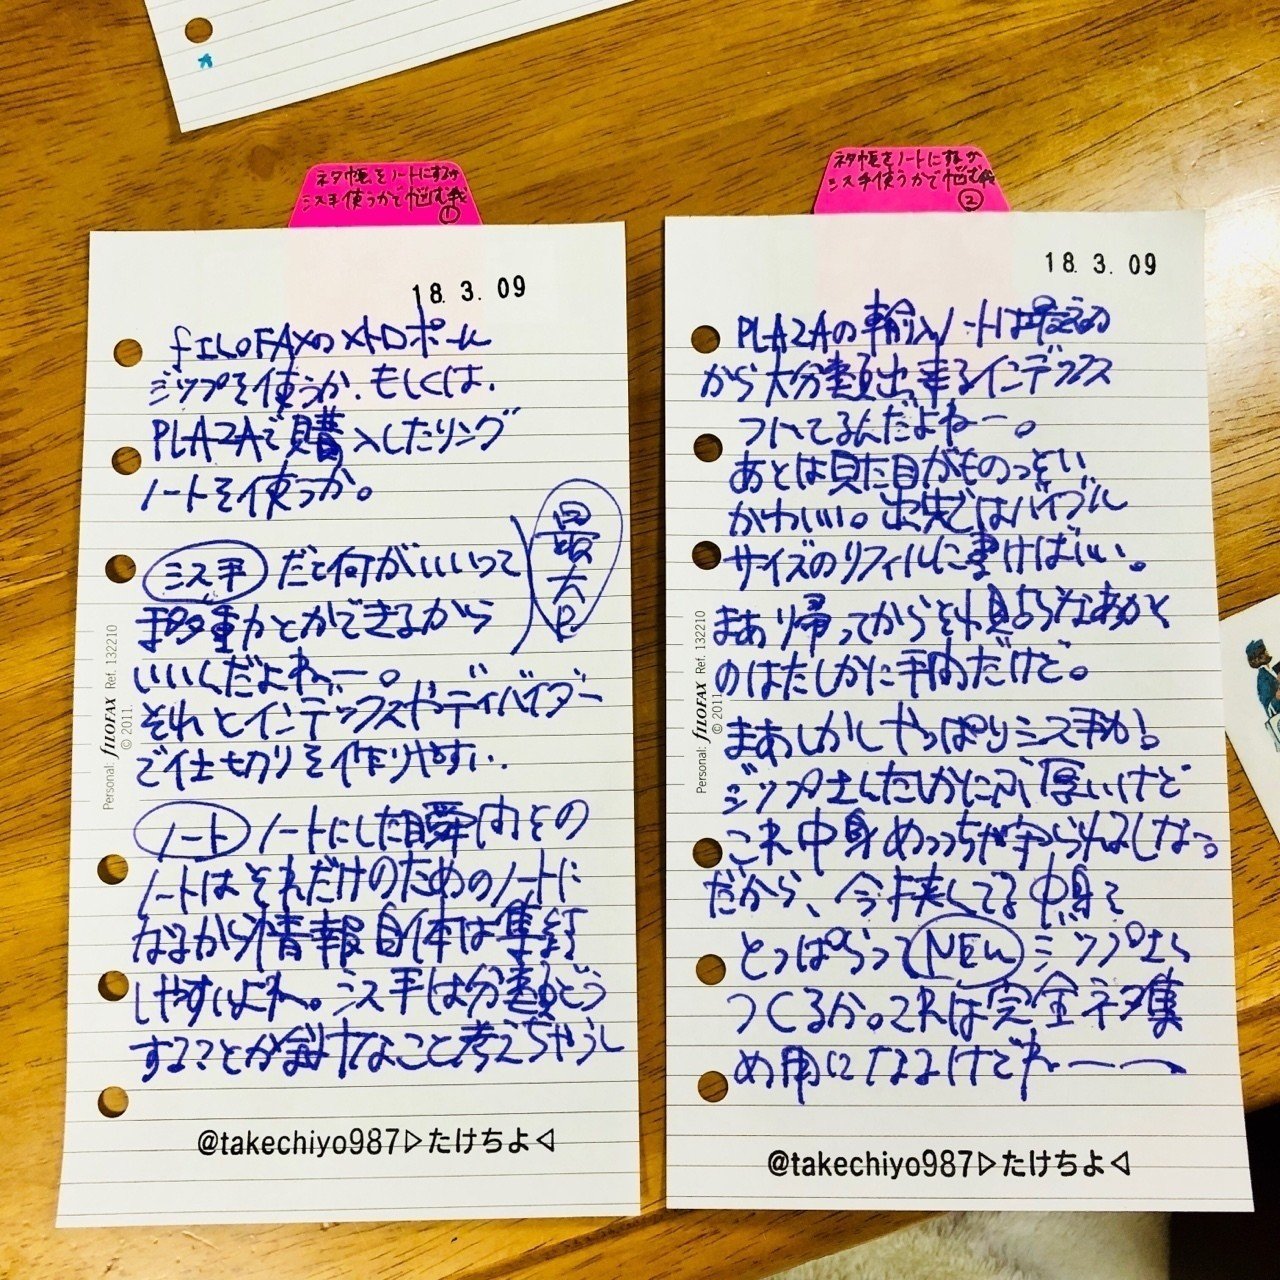 ネタ帳をノートにするか
システ手使うかで悩む我
①
18. 3. 09
fILOFAXのメトロポール
ジップを使うか、もしくは、
PLAZAで購入したリング
ノートを使うか。
シス手 だと何がいいって
移動とかできるから
いいんだよねー。
最大P.
それとインデックスやディバイダー
で仕切りを作りやすい。
ノート ノートにした瞬間その
ノートはそれだけのためのノートに
なるから情報自体は集約
しやすいよね。シス手は分類どう
する?とか余計なこと考えちゃうし
Personal: fILOFAX Ref. 132210
© 2011.
@takechiyo987▷たけちよ◁
ネタ帳をノートにするか
シス手使うかで悩む我
②
18. 3. 09
PLAZAの輸入ノートは
から大分類出来るインデックス
ついてるんだよねー。
あとは見た目がものっそい
かわいい。出先ではバイブル
サイズのリフィルに書けばいい。
まあり帰ってからそれ貼らなあかん
のはたしかに手間だけど。
まあしかしやっぱりシス手か。
ジップさんたしかにぶ厚いけど
これ中身めっちゃ守られるしなっ。
だから、今
とっぱらってNEWジップさん
つくるか。これは完全ネタ集
め用になるけどねー〜
Personal: fILOFAX Ref. 132210
© 2011.
@takechiyo987▷たけちよ◁